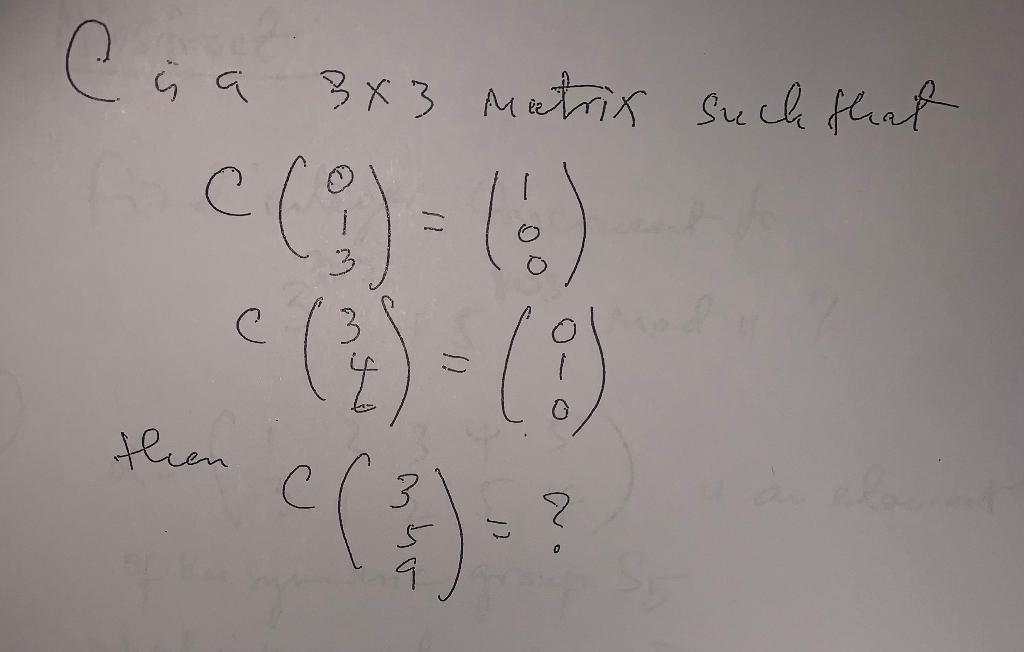 C is a 3x3 matrix such that
C (0 1 3) = (1 0 0)
C (3 4 6) = (0 1 0)
then C (3 5 9) = ?